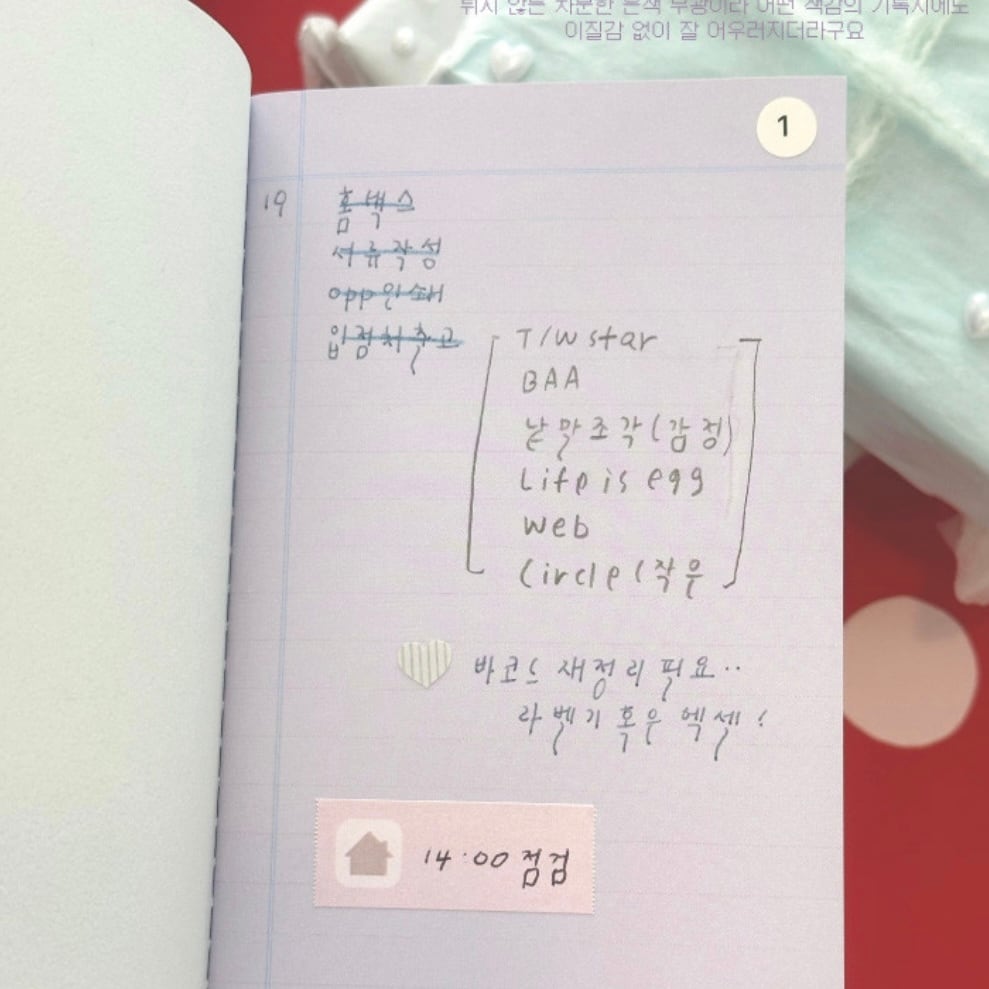 튀지 않는 차분한 은색 무광이라 어떤 색감의 기록지에도
이질감 없이 잘 어우러지더라구요
1
19 홈박스
서류작성
opp인쇄
입점처출고
T/W star
BAA
낱말조각(감정)
Life is egg
Web
Circle(작은
바코드 재정리 필요..
라벨기 혹은 엑셀!
14:00 점검